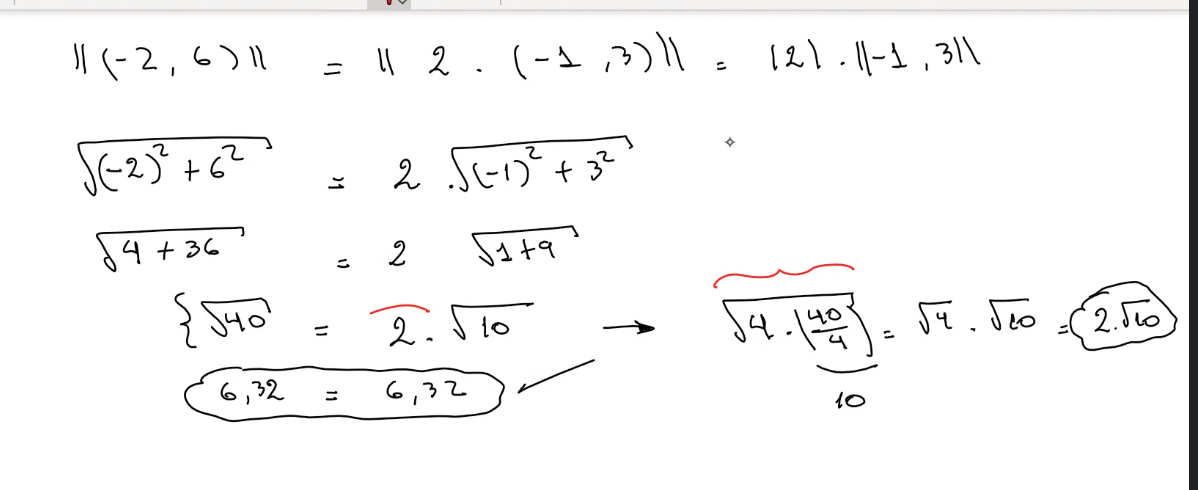 ||(-2, 6)|| = || 2 . (-1, 3)|| = |2| . ||-1, 3||
√(-2)² + 6² = 2 . √(-1)² + 3²
√4 + 36 = 2 √1+9
{√40 = 2 . √10 → √4 . (40/4) = √4 . √10 = 2.√10
10
6,32 = 6,32